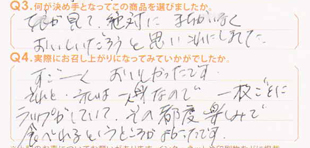 Q3.何が決め手となってこの商品を選びましたか
娘が見て、絶対に
おいしいだろうと思いこれにしました。
Q4.実際にお召し上がりになってみていかがでしたか。
すごーく おいしかったです。
それと 私は一人身なので 一枚ごとに
ラップがしていて、その都度楽しみで
食べれるというところがよかったです。